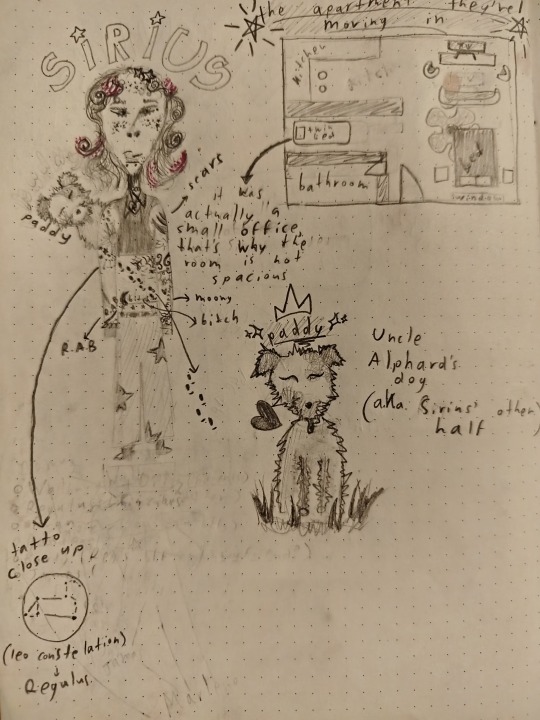 the apartment they're
moving in
SIRIUS
Kitchen
TV
twin
bed
bathroom
window
paddy
scars
it was
actually a
small office,
that's why the
room is not
spacious
moony
bitch
R.A.B
paddy
Uncle
Alphard's
dog
(aka Sirius' other
half
tatto
close up
(leo constelation)
Regulus